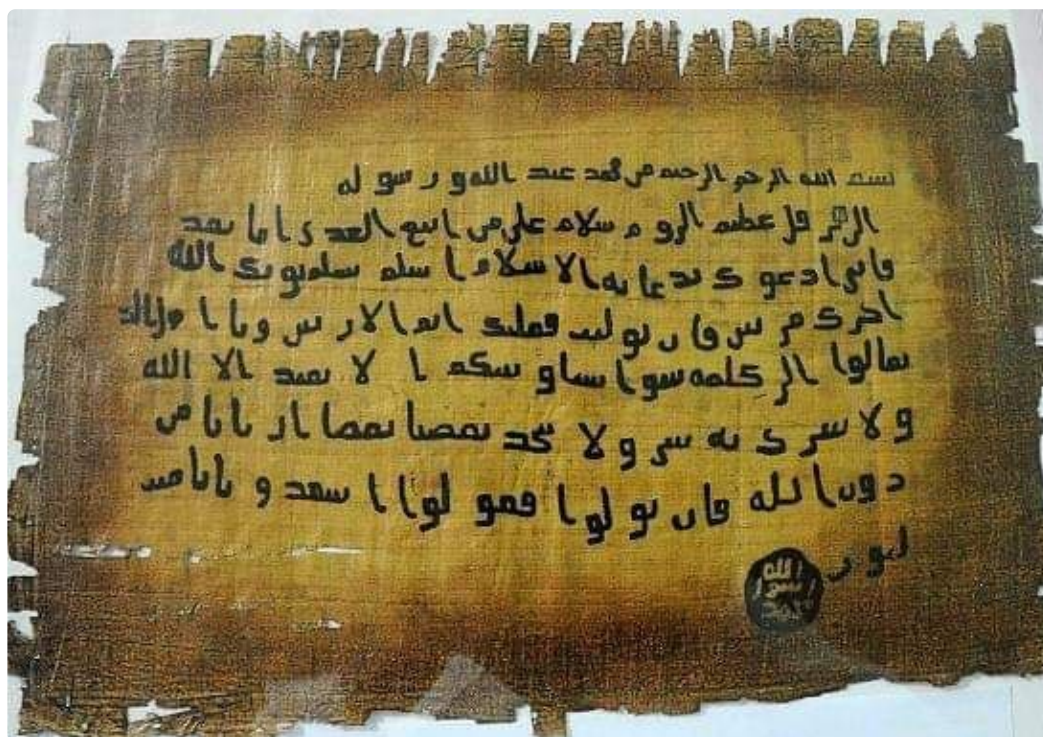 بسم الله الرحمن الرحيم من محمد عبد الله ورسوله
الى هرقل عظيم الروم سلام على من اتبع الهدى اما بعد
فاني ادعوك بدعايه الاسلام اسلم تسلم يوتك الله
اجرك مرتين فان توليت فعليك اثم الاريسين ويا اهل
تعالوا الى كلمه سوا بيننا وبينكم الا نعبد الا الله
ولا نشرك به ولا يتخذ بعضنا بعضا اربابا من
دون الله فان تولوا فقولوا اشهدوا بانا مس
لمون
الله
رسول
محمد